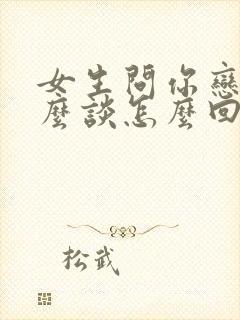 女生問你戀
麼談怎麼回
松武